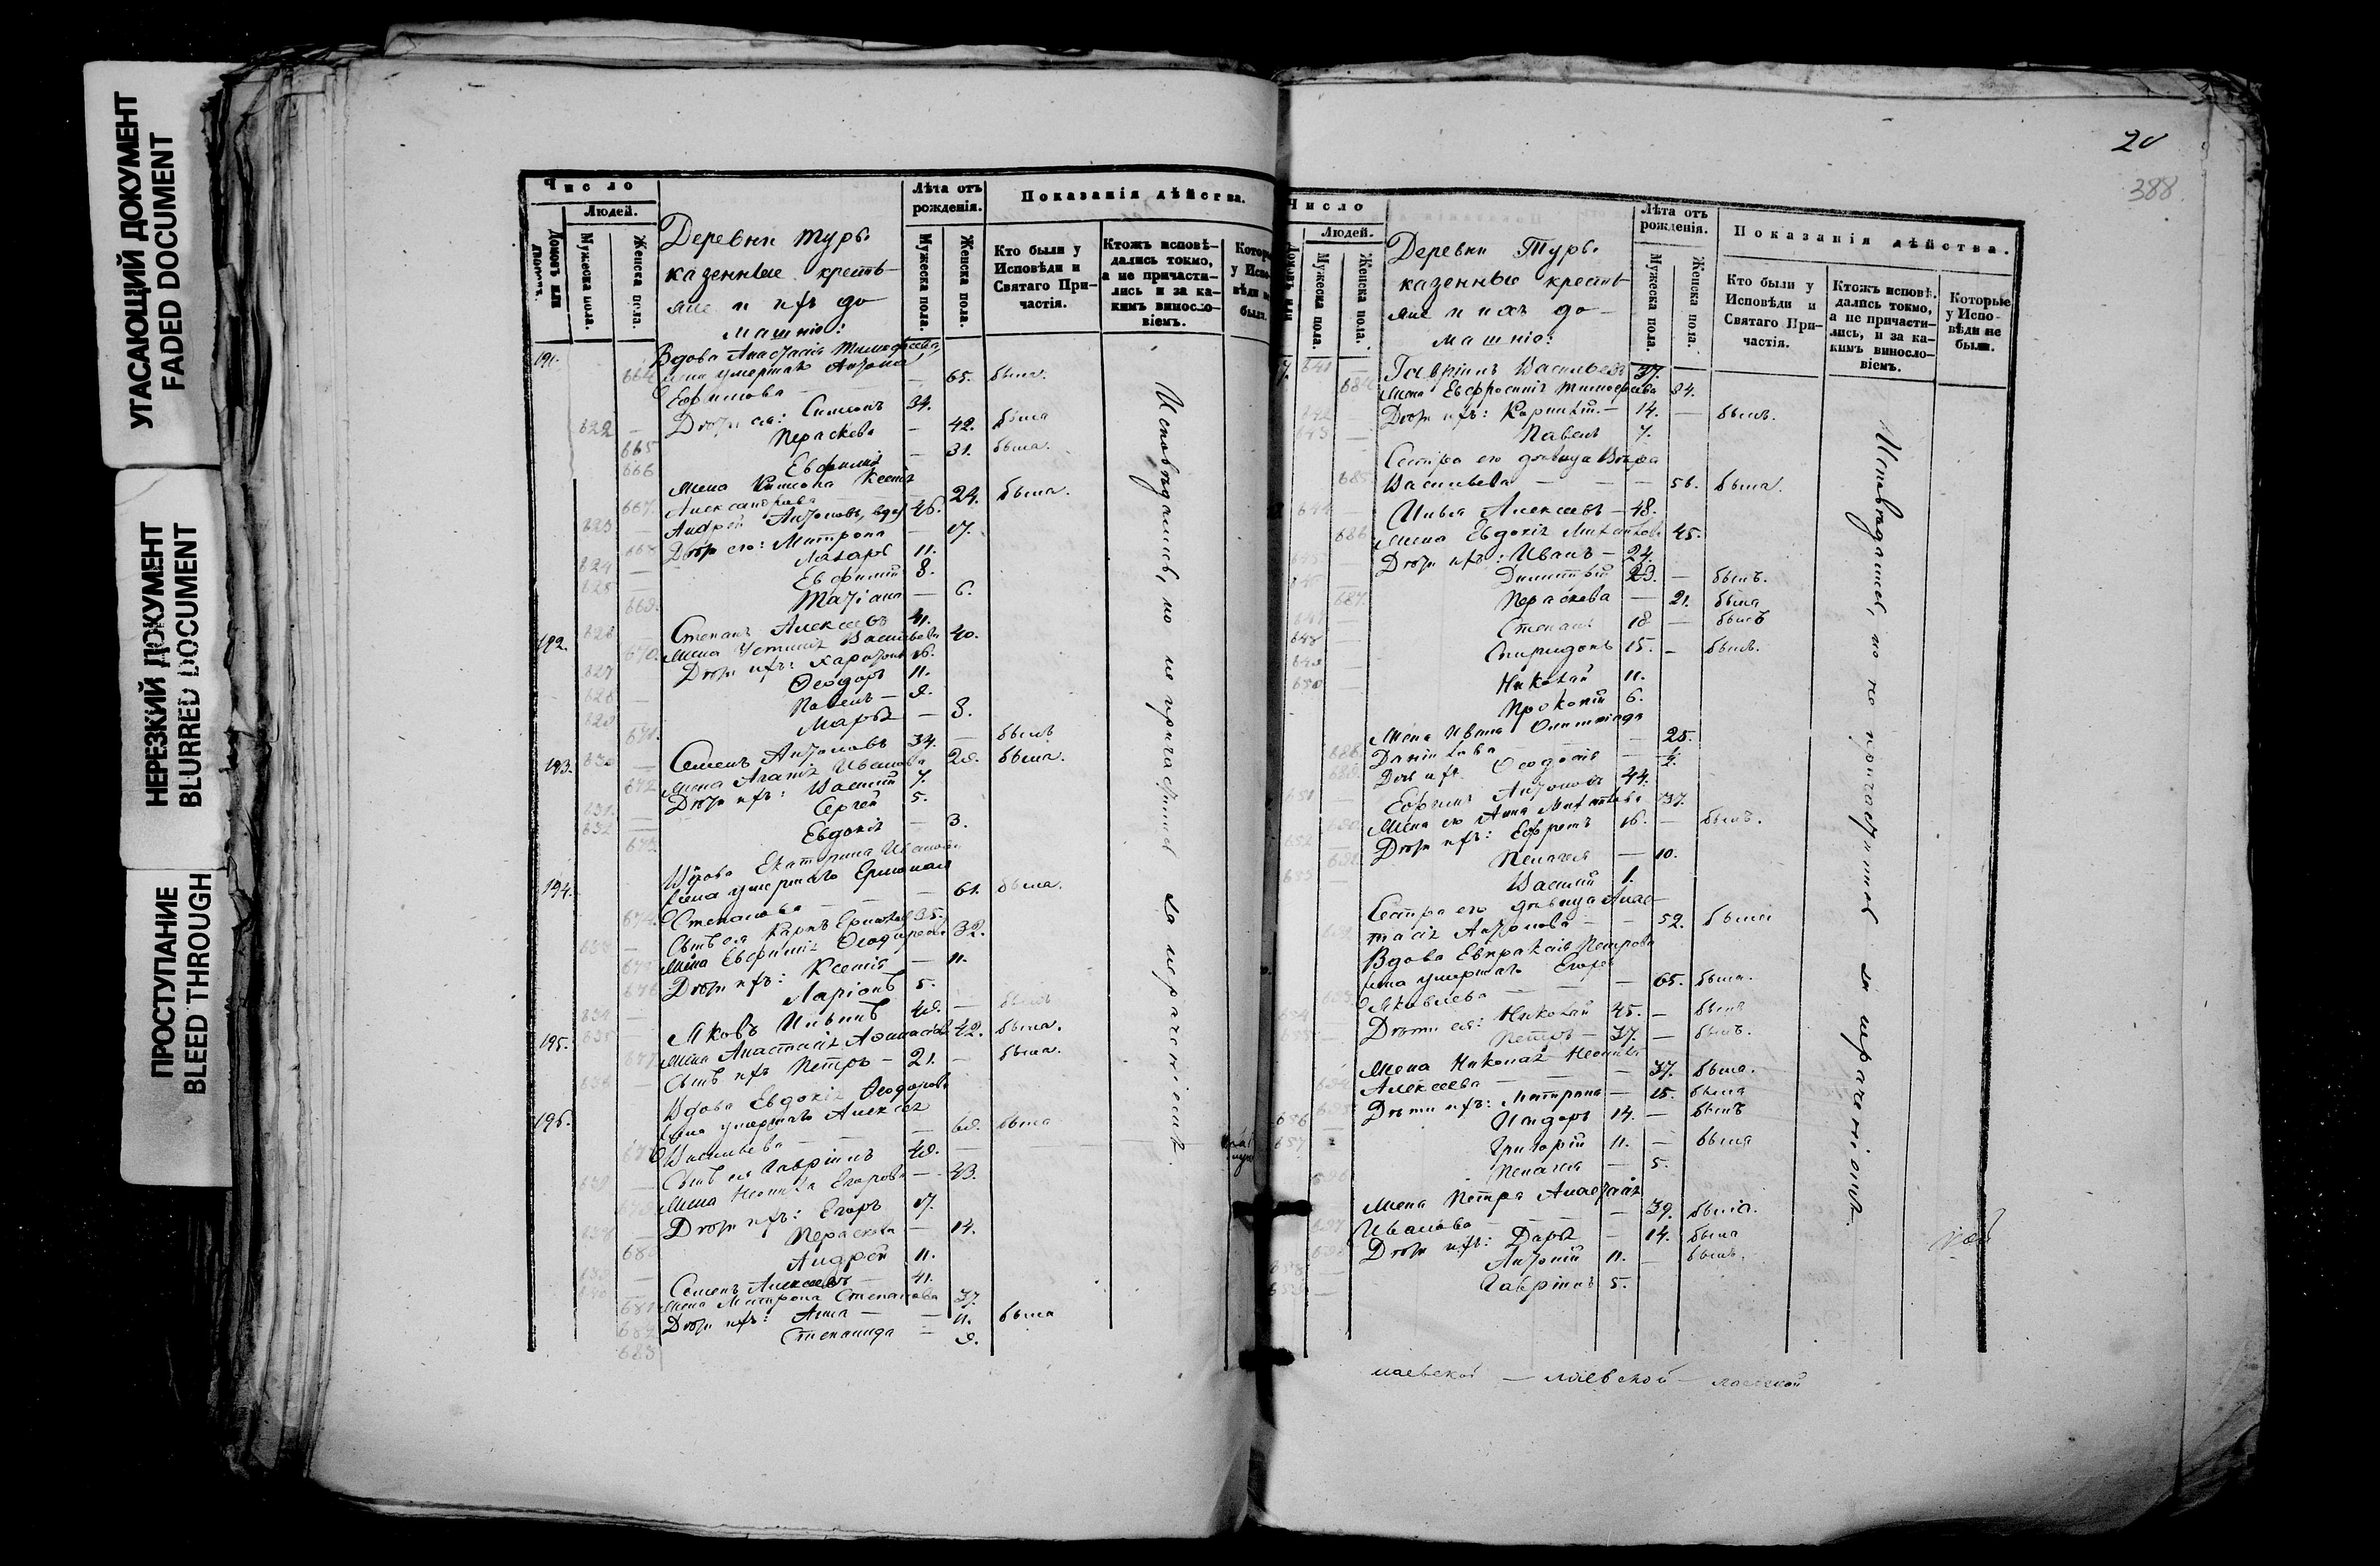 УГАСАЮЩИЙ ДОКУМЕНТ
FADED DOCUMENT
НЕРЕЗКИЙ ДОКУМЕНТ
BLURRED DOCUMENT
ПРОСТУПАНИЕ
BLEED THROUGH
Число
Людей.
Домовъ или
Мужеска пола.
Женска пола.
Деревни Туры
казенные кресть-
яне и ихъ до-
машнiе:
Лѣта отъ
рожденія.
Мужеска пола.
Женска пола.
Показанія дѣйства.
Кто были у
Исповѣди и
Святаго При-
частія.
Ктожъ исповѣ-
дались токмо,
а не причасти-
лись и за ка-
кимъ винословіемъ.
191. Вдова Анастасія Тимофеева
664 жена умершаго Антона
Ефимова — 65. была.
622 — Дѣти ея: Симеонъ 34.
665 Параскева — 42. была
666 Евфимія — 31. была.
Жена Симеона Ксенія
667. Александрова 24. была.
623 — Андрей Антоновъ, вдов 46.
668 Дѣти его: Матрона — 17.
624 — Лазарь 11.
625 — Евфимій 8.
669. Татіана — 6.
192. 626 — Степанъ Алексѣевъ 41.
670. Жена Устинія Васильева 40.
627 Дѣти ихъ: Харитонъ 16.
628 — Ѳеодоръ 11.
629 Павелъ — 9.
671. Марѳа — 8.
193. 630 — Семенъ Антоновъ 34. — былъ
672 Жена Агапія Иванова 28. была.
631. — Дѣти ихъ: Василій 7.
632 — Сергей 5.
673. Евдокія — 3.
194. Вдова Екатерина Иванова
жена умершаго Ермолая
674. Степанова — 61. была.
633 — Сынъ ея Карпъ Ермолаев 35.
675 Жена Евфимія Ѳеодорова 32.
676 Дѣти ихъ: Ксенія — 11.
634 — Ларіонъ 5.
195. 635 — Яковъ Ильинъ 49. — былъ
677. Жена Анастасія Аѳанасіева 42. была.
636 — Сынъ ихъ Петръ — 21. — была.
196. Вдова Евдокія Ѳеодорова
жена умершаго Алексѣя
678 Васильева — 69. была
637 — Сынъ ея Гавріилъ 49. —
679 Жена Неонила Егорова — 43.
638 — Дѣти ихъ: Егоръ 17.
680 Параскева — 14.
639 — Андрей 11.
640 — Семенъ Алексѣевъ 41.
681 Жена Матрона Степанова 37.
682 Дѣти ихъ: Анна — 11. была
683 Степанида — 9.
Исповѣдались, но не причастились за нераченіемъ.
20
388
Число
Людей.
Мужеска пола.
Женска пола.
Деревни Туры
казенные кресть-
яне и ихъ до-
машнiе:
Лѣта отъ
рожденія.
Мужеска пола.
Женска пола.
Показанія дѣйства.
Кто были у
Исповѣди и
Святаго При-
частія.
Ктожъ исповѣ-
дались токмо,
а не причасти-
лись, и за ка-
кимъ винословіемъ.
Которые
у Испо-
вѣди не
были.
641 — Гавріилъ Васильевъ 37.
684 Жена Евфросинія Тимофеева 34.
642 Дѣти ихъ: Корнилій — 14. — былъ.
643 — Павелъ 7.
Сестра его дѣвица Вѣра
685 Васильева — 56. была.
644 — Илья Алексѣевъ — 48.
686 Жена Евдокія Михайлова 45.
645 — Дѣти ихъ: Иванъ — 24.
646 — Димитрій 23. — былъ.
687. Параскева — 21. была
647 — Степанъ 18 — былъ
648 Спиридонъ 15. — былъ.
649 — Николай 11.
650 — Прокопій 6.
Жена Ивана Олимпіада
688 Данилова — 25.
689. Дочь ихъ Ѳеодосія — ½.
651 — Ефимъ Антоновъ 44.
690. Жена его Анна Михайлова 37.
652 — Дѣти ихъ: Ефремъ 16. — былъ.
691. Пелагея — 10.
653 — Василій 1.
Сестра его дѣвица Анас-
692 тасія Антонова — 52. была
Вдова Евпраксія Петрова
жена умершаго Егора
693 Яковлева — 65. была.
654 Дѣти ея: Николай 45. — былъ
655 — Петръ — 37. — былъ.
Жена Николая Неонила
694 Алексеева — 37. была.
695 Дѣти ихъ: Матрона — 15. была
656 — Исидоръ 14. — былъ
657 Григорій 11. — была
696 Пелагея — 5.
Жена Петра Анастасія
697 Иванова — 39. была.
698 Дѣти ихъ: Дарья — 14. была
658 — Антоній 11. — былъ.
659 — Гавріилъ 5.
Исповѣдались, но не причастились за нераченіемъ.